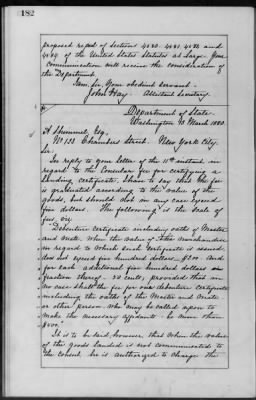 182
proposed repeal of Sections 4580. 4581. 4582 and
4584 of the United States Statutes at Large. Your
communication will receive the consideration of
the Department.
I am, Sir, Your obedient servant.
John Hay
Assistant Secretary.
Department of State.
Washington 13 March 1880.
Esq.
No 133 Chambers Street. New York City.
Sir:
In reply to your letter of the 11th instant, in
regard to the Consular fee for certifying a
landing certificate, I have to say that the fee
is graduated according to the value of the
goods, but should not in any case exceed
five dollars. The following is the scale of
fees, viz:
"Debenture certificate including oaths of Master
and mate, when the value of the merchandise
in regard to which such certificate is issued
does not exceed five hundred dollars, $2.00. And
for each additional five hundred dollars or
fraction thereof 50 cents, provided that in
no case shall the fee for one debenture certificate
including the oaths of the Master and Mate
or other person who may be called upon to
make the necessary affidavits be more than
$5.00."
It is to be said, however, that when the value
of the goods landed is not communicated to
the Consul he is authorized to charge the